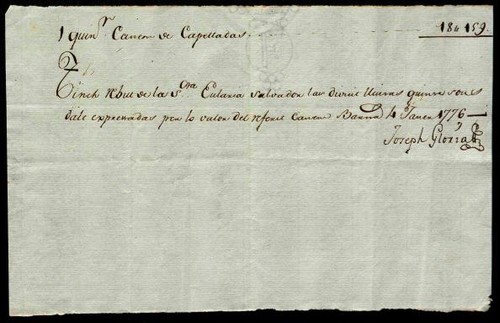 1 quinr Canon de Capelladas 18 lt 15 s.
Tinch rebut de la Sra Eularia Salvador las divuit lliuras quinse sous
dalt expresadas per lo valor del referit Canon Barna 4 Janer 1776
Joseph Gloria